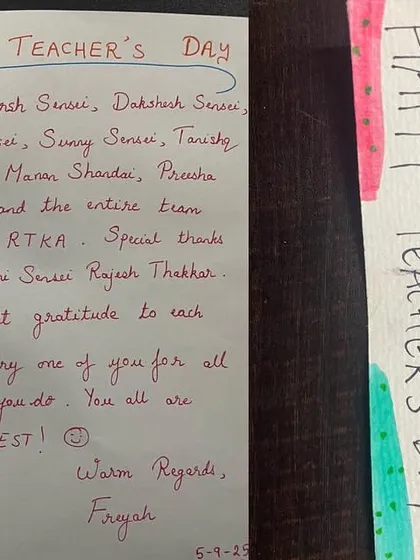 TEACHER'S DAY
rsh Sensei, Dakshesh Sensei,
sei, Sunny Sensei, Tanishq
Manan Shandai, Preesha
and the entire team
RTKA. Special thanks
ni Sensei Rajesh Thakkar.
t gratitude to each
ry one of you for all
you do. You all are
EST! ☺
Warm Regards,
Freyah
5-9-25
TEACHERS